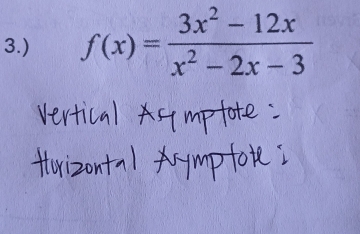 3.) f(x) = \frac{3x² − 12x}{x² − 2x − 3}
Vertical Asymptote :
Horizontal Asymptote :